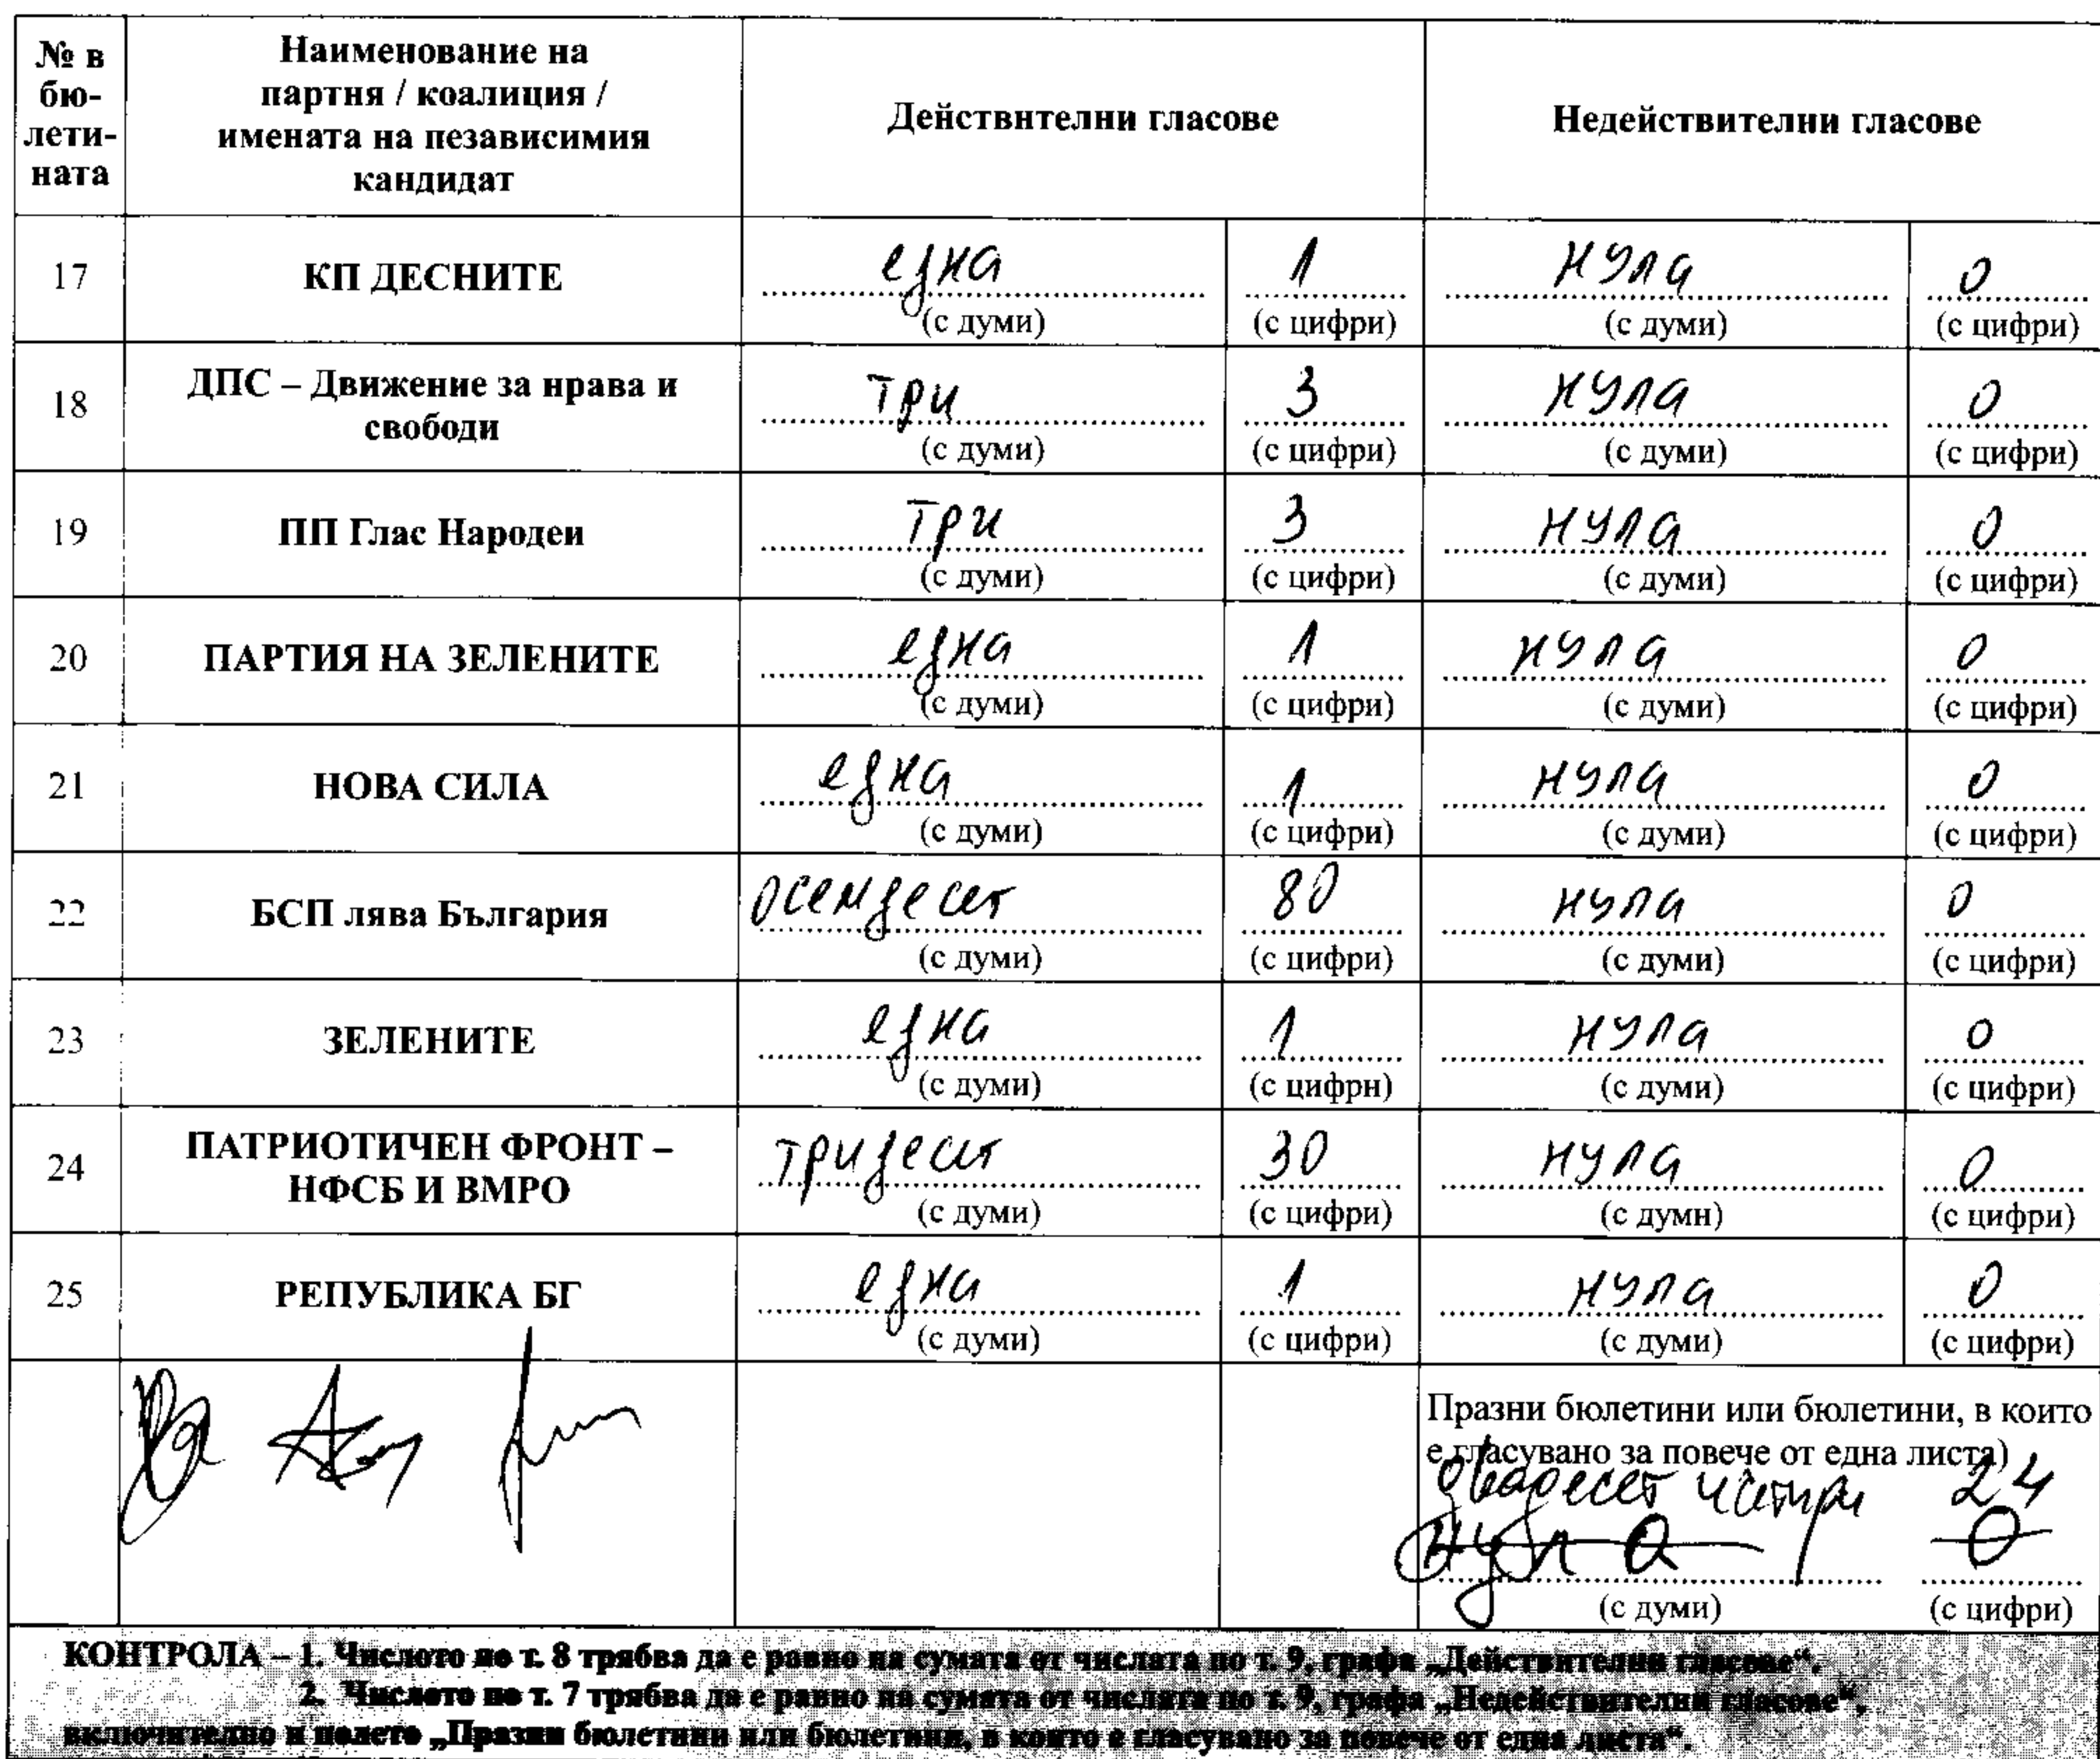 № в бю-лети-ната | Наименование на партия / коалиция / имената на независимия кандидат | Действителни гласове | Недействителни гласове
17 | КП ДЕСНИТЕ | една (с думи) | 1 (с цифри) | нула (с думи) | 0 (с цифри)
18 | ДПС – Движение за права и свободи | три (с думи) | 3 (с цифри) | нула (с думи) | 0 (с цифри)
19 | ПП Глас Народен | три (с думи) | 3 (с цифри) | нула (с думи) | 0 (с цифри)
20 | ПАРТИЯ НА ЗЕЛЕНИТЕ | една (с думи) | 1 (с цифри) | нула (с думи) | 0 (с цифри)
21 | НОВА СИЛА | една (с думи) | 1 (с цифри) | нула (с думи) | 0 (с цифри)
22 | БСП лява България | осемдесет (с думи) | 80 (с цифри) | нула (с думи) | 0 (с цифри)
23 | ЗЕЛЕНИТЕ | една (с думи) | 1 (с цифри) | нула (с думи) | 0 (с цифри)
24 | ПАТРИОТИЧЕН ФРОНТ – НФСБ И ВМРО | тридесет (с думи) | 30 (с цифри) | нула (с думи) | 0 (с цифри)
25 | РЕПУБЛИКА БГ | една (с думи) | 1 (с цифри) | нула (с думи) | 0 (с цифри)
Празни бюлетини или бюлетини, в които
е гласувано за повече от една листа)
двадесет четири 24
нула 0
(с думи) (с цифри)
КОНТРОЛА – 1. Числото по т. 8 трябва да е равно на сумата от числата по т. 9, графа „Действителни гласове“.
2. Числото по т. 7 трябва да е равно на сумата от числата по т. 9, графа „Недействителни гласове“,
включително и полето „Празни бюлетини или бюлетини, в които е гласувано за повече от една листа“.